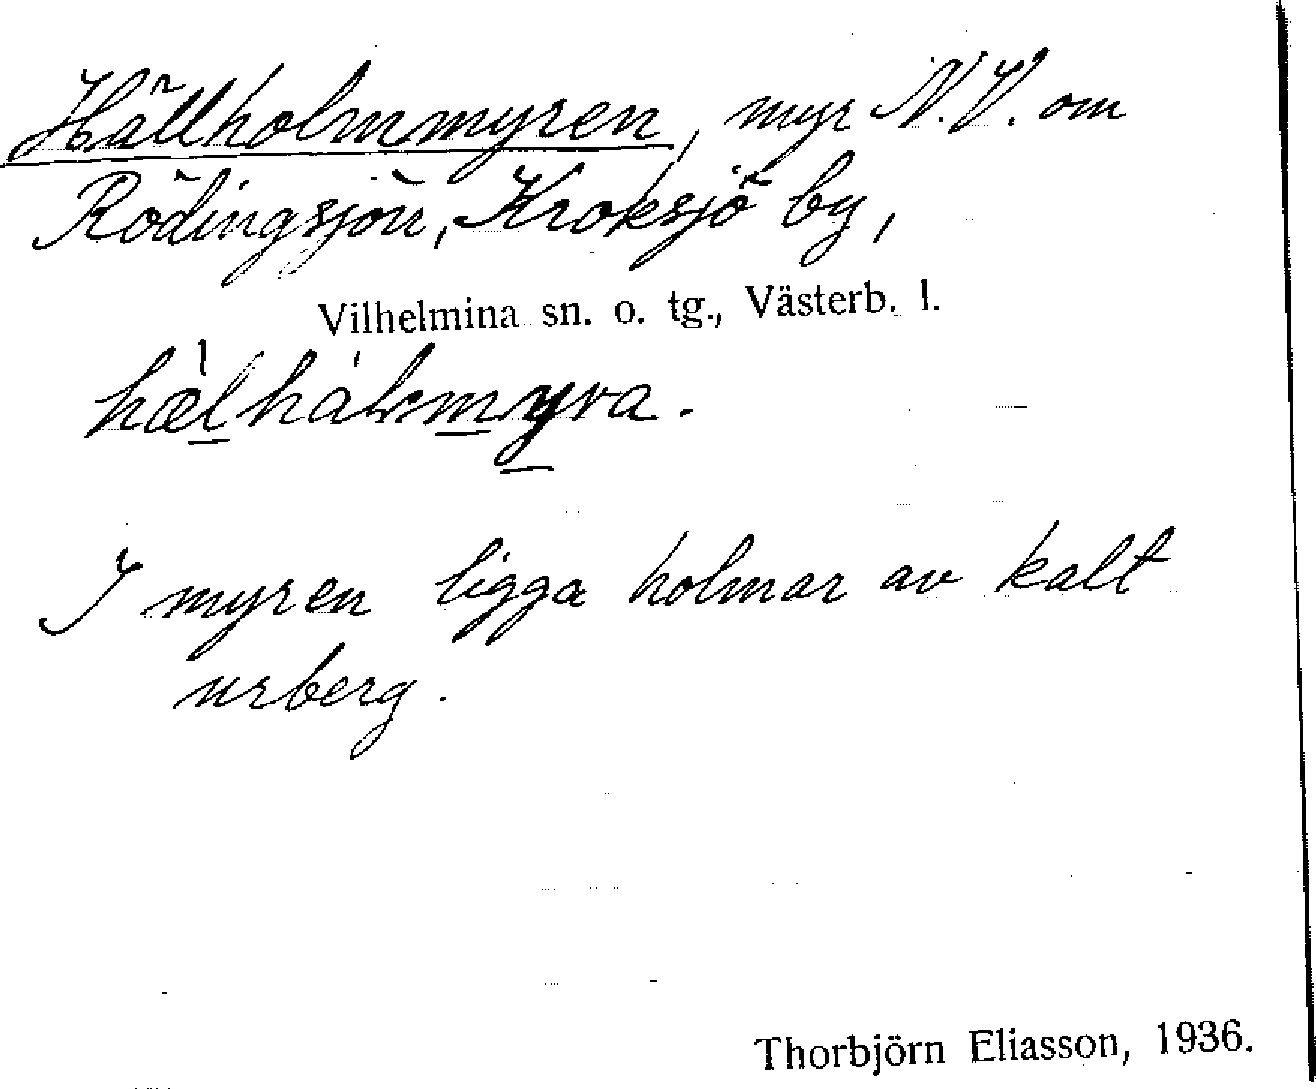 Hällholmmyren, myr N.V. om
Rödingsjön, Kroksjö by,
Vilhelmina sn. o. tg., Västerb. l.
I myren ligga holmar av kalt
urberg.
Thorbjörn Eliasson, 1936.